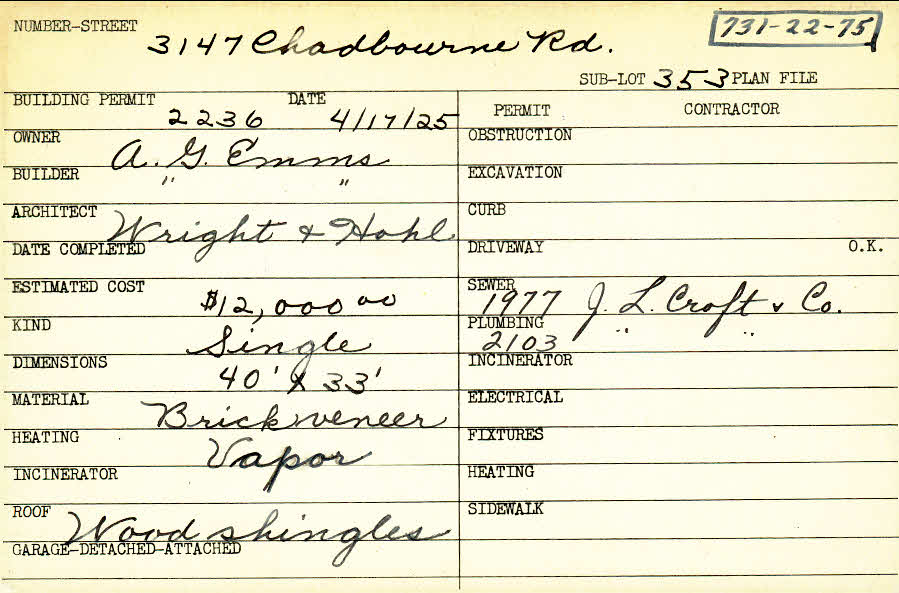 NUMBER-STREET 3147 Chadbourne Rd. 731-22-75
SUB-LOT 353 PLAN FILE
BUILDING PERMIT 2236 DATE 4/17/25
OWNER A. G. Emms
BUILDER " "
ARCHITECT Wright & Hohl
DATE COMPLETED
ESTIMATED COST $12,000 00
KIND Single
DIMENSIONS 40' X 33'
MATERIAL Brick veneer
HEATING Vapor
INCINERATOR
ROOF Wood shingles
GARAGE-DETACHED-ATTACHED
PERMIT CONTRACTOR
OBSTRUCTION
EXCAVATION
CURB
DRIVEWAY O.K.
SEWER 1977 J. L. Croft & Co.
PLUMBING 2103 " "
INCINERATOR
ELECTRICAL
FIXTURES
HEATING
SIDEWALK